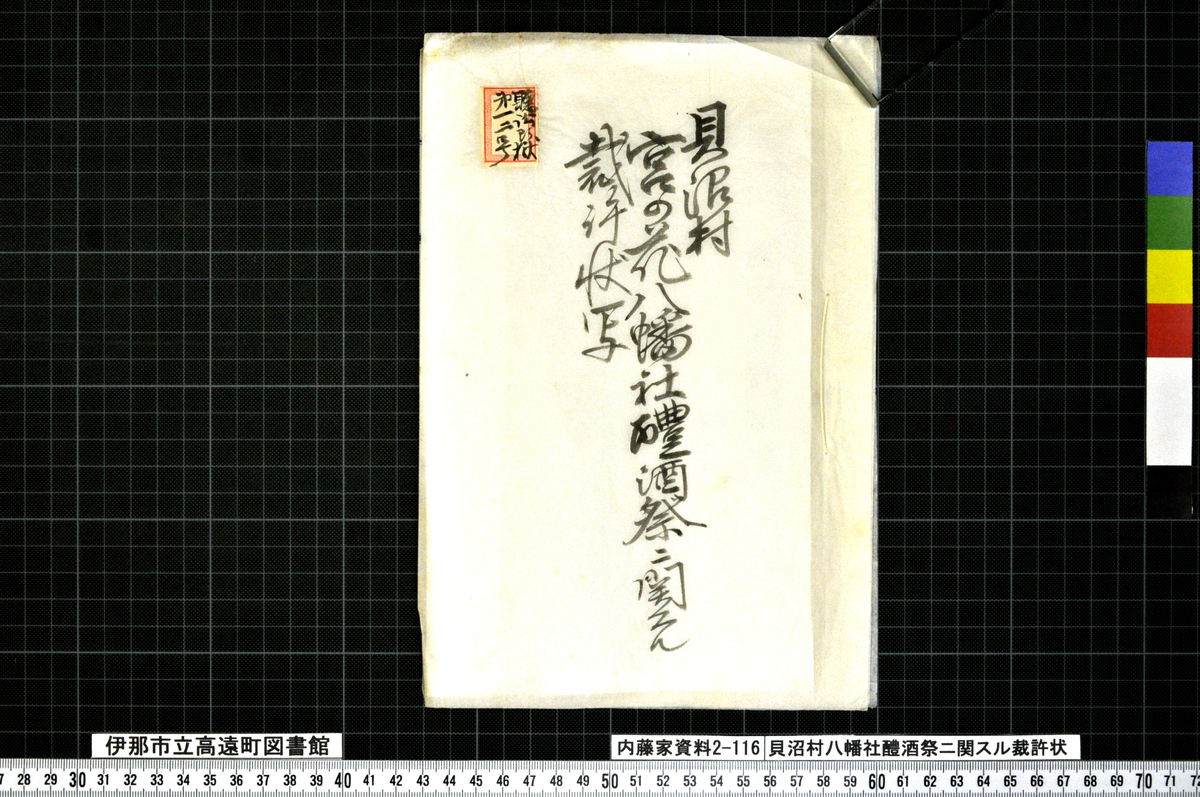 貝沼村
宮の花八幡社醴酒祭ニ関スル
裁許状写
第一二四号
伊那市立高遠町図書館
内藤家資料2-116
貝沼村八幡社醴酒祭ニ関スル裁許状
27 28 29 30 31 32 33 34 35 36 37 38 39 40 41 42 43 44 45 46 47 48 49 50 51 52 53 54 55 56 57 58 59 60 61 62 63 64 65 66 67 68 69 70 71 72